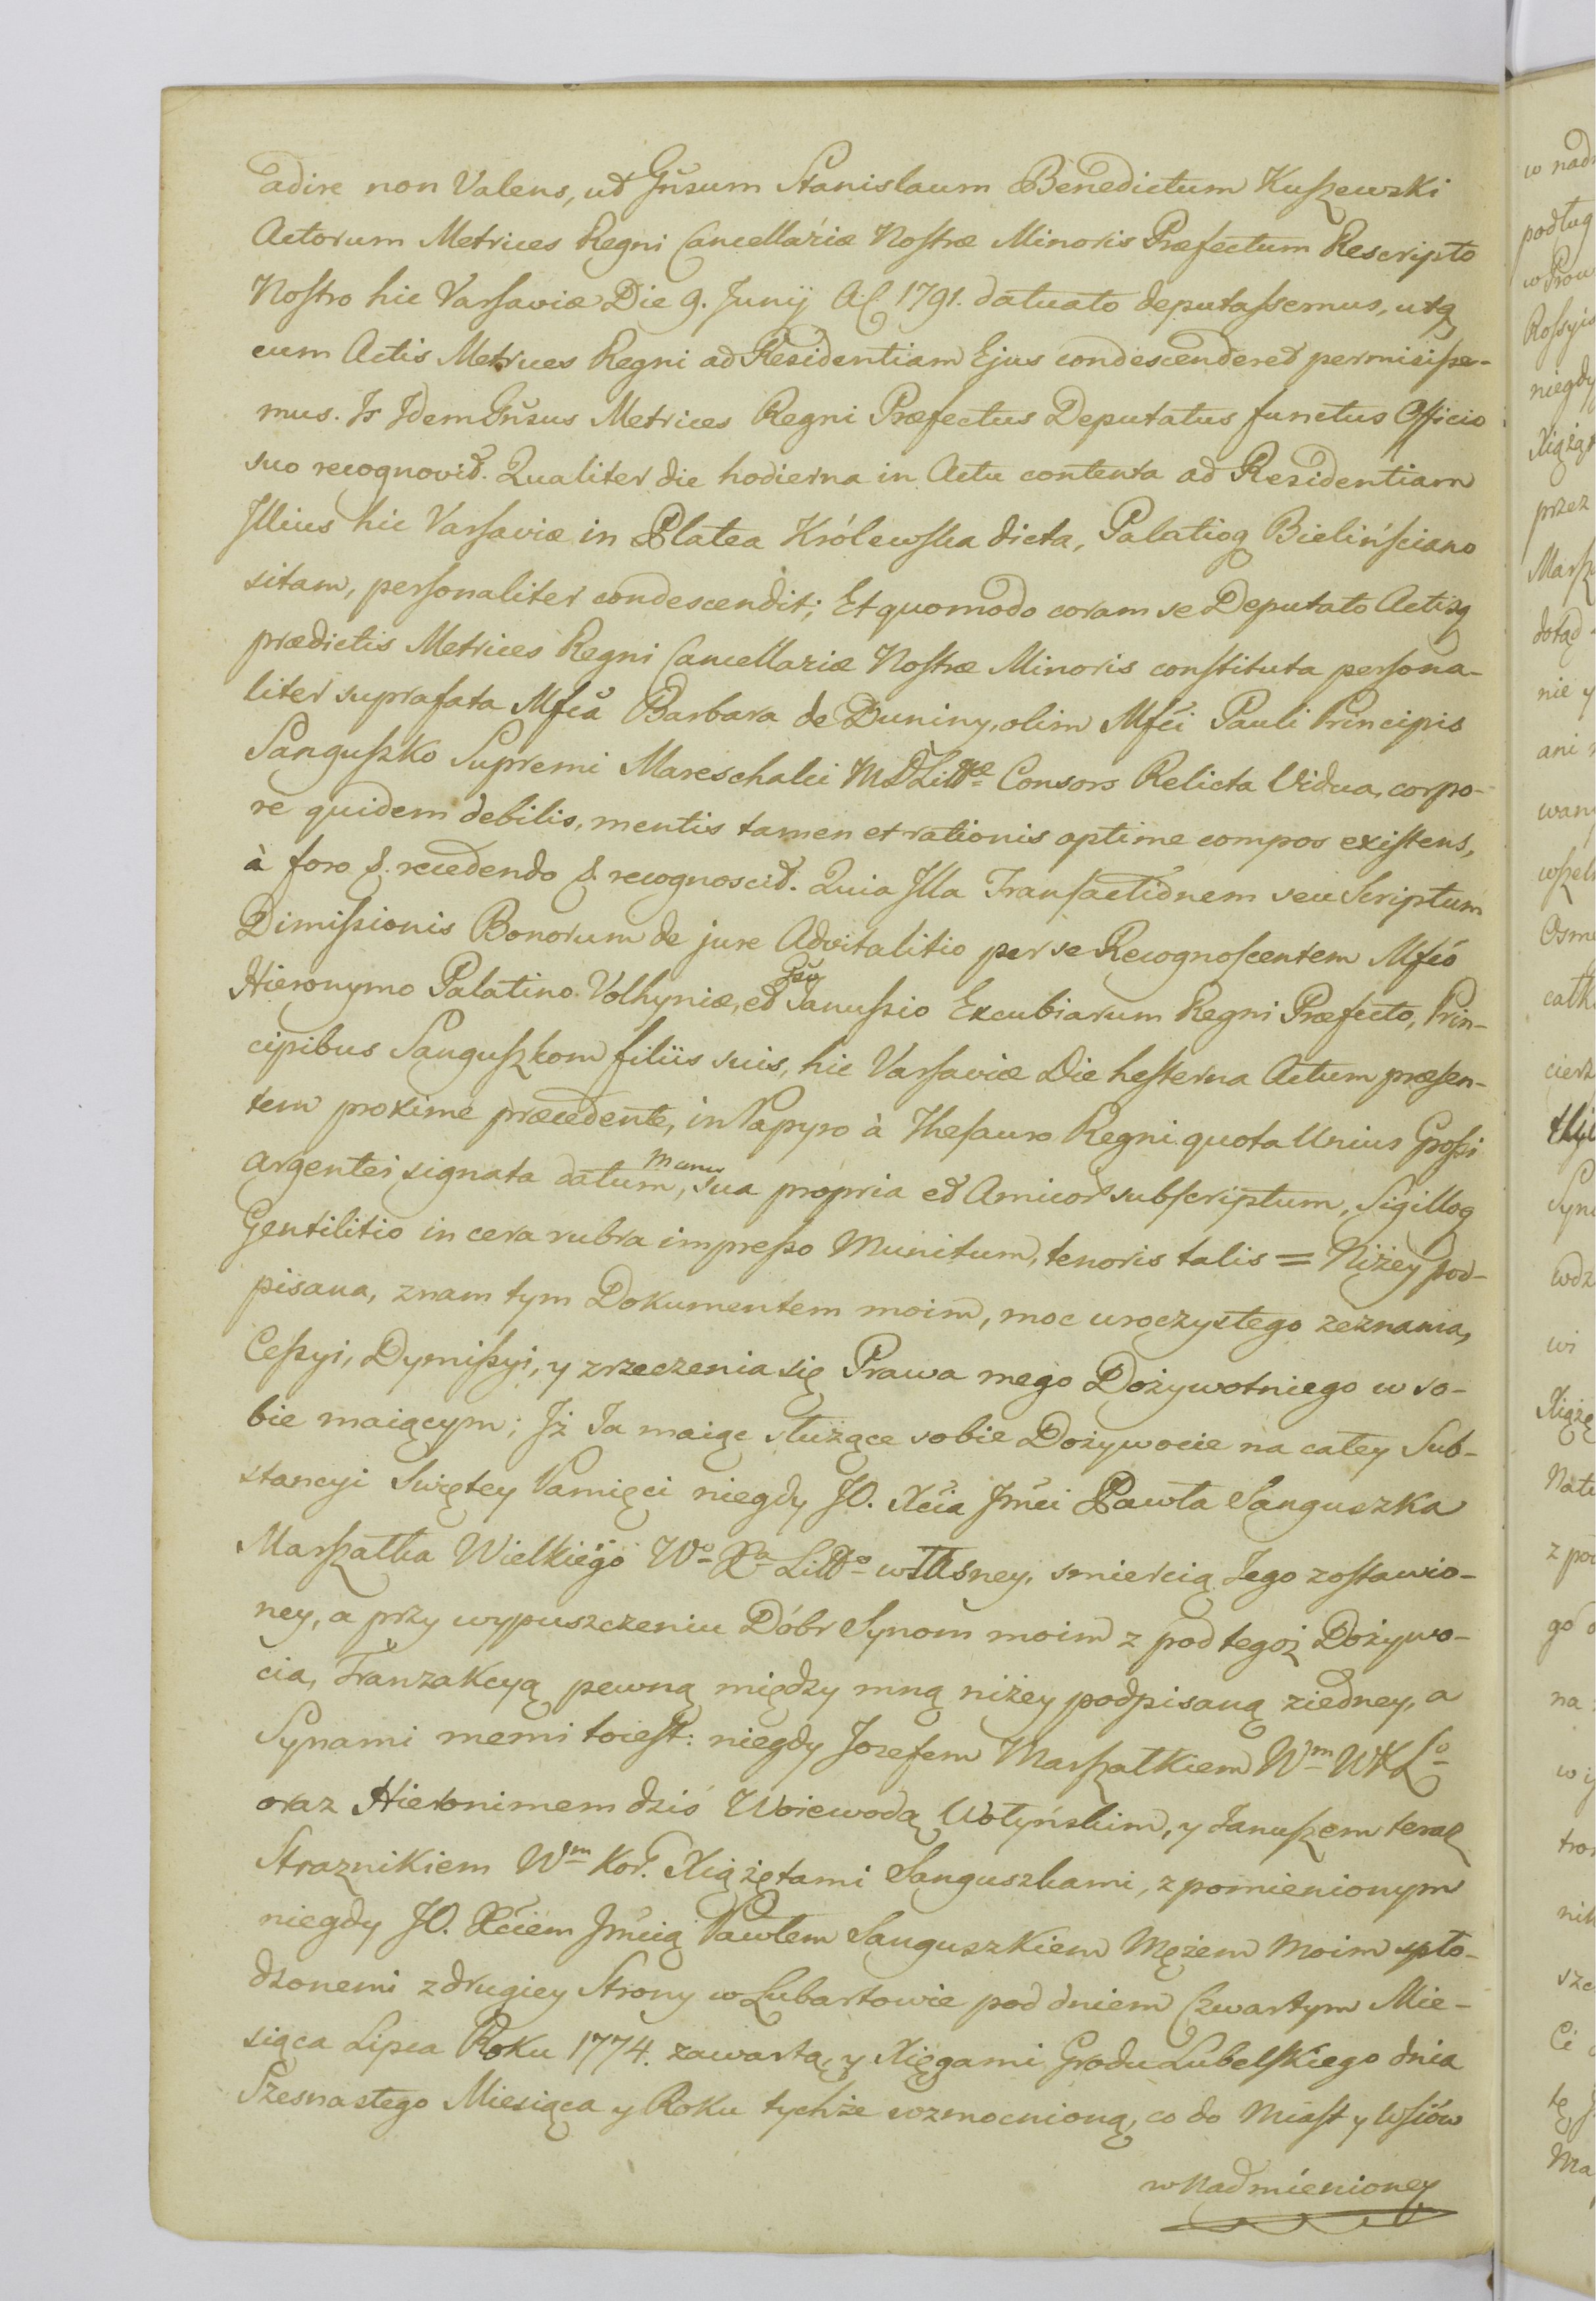 adire non Valens, ut Gnsum Stanislaum Benedictum Kuszewski
Actorum Metrices Regni Cancellariæ Nostræ Minoris Præfectum Rescripto
Nostro hic Varsaviæ Die 9. Junij A 1791. datuato deputassemus, utq
cum Actis Metrices Regni ad Residentiam Ejus condescenderet permisisse-
mus. Is Idem Gnsus Metrices Regni Præfectus Deputatus functus Officio
suo recognovit. Qualiter die hodierna in Actu contenta ad Residentiam
Illius hic Varsaviæ in Platea Królewska dicta, Palatioq Bielińsciano
sitam, personaliter condescendit; Et quomodo coram se Deputato Actisq
prædictis Metrices Regni Cancellariæ Nostræ Minoris constituta persona-
liter suprafata Mfca Barbara de Duniny, olim Mfci Pauli Principis
Sanguszko Supremi Mareschalci MDLittæ Consors Relicta Vidua, corpo-
re quidem debilis, mentis tamen et rationis optime compos existens,
à foro &. recedendo &. recognoscit. Quia Illa Transactionem seu Scriptum
Dimissionis Bonorum de jure Advitalitio per se Recognoscentem Mfco
Hieronymo Palatino Volhyniæ, et Janussio Excubiarum Regni Præfecto, Prin-
cipibus Sanguszkom filiis suis, hic Varsaviæ Die hesterna Actum præsen-
tem proxime præcedente, in Papyro à Thesauro Regni quota Unius Grossi
argentei signata datum, Manu sua propria et Amicor subscriptum, Sigilloq
Gentilitio in cera rubra impresso Munitum, tenoris talis = Niżey pod-
pisana, znam tym Dokumentem moim, moc uroczystego zeznania,
Cessyi, Dymissyi, y zrzeczenia się Prawa mego Dożywotniego w so-
bie maiącym; Iż Ja maiąc służące sobie Dożywocie na całey Sub-
stancyi Swiętey Pamięci niegdy JO. Xcia Jmci Pawła Sanguszka
Marszałka Wielkiego Wo Xa Litto własney, smiercią Jego zostawio-
ney, a przy wypuszczeniu Dóbr Synom moim z pod tegoż Dożywo-
cia, Tranzakcyą pewną między mną niżey podpisaną ziedney, a
Synami memi toiest: niegdy Jozefem Marszałkiem Wm WXLo
oraz Hieronimem dziś Woiewodą Wołyńskim, y Januszem teraz
Straznikiem Wm Kor. Xiążętami Sanguszkami, z pomienionym
niegdy JO. Xciem Jmcią Pawłem Sanguszkiem Mężem Moim spło-
dzonemi z drugiey Strony w Lubartowie pod dniem Czwartym Mie-
siąca Lipca Roku 1774. zawartą, y Xięgami Grodu Lubelskiego dnia
Szesnastego Miesiąca y Roku tychże wzmocnioną, co do Miast y Wsiów
w Nadmienioney